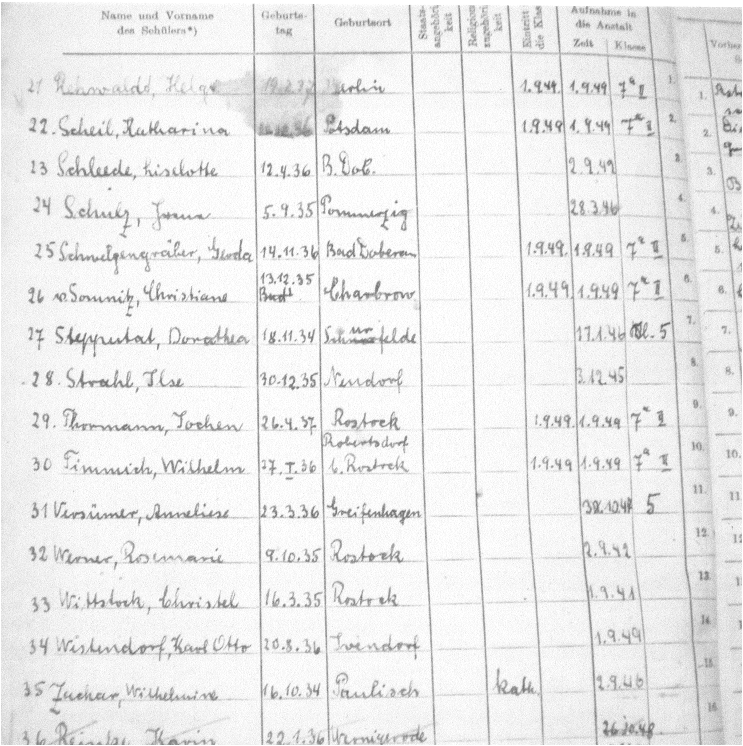 Name und Vorname des Schülers*) Geburts-tag Geburtsort Staats-angehörig-keit Religions-angehörig-keit Eintritt die Klasse Aufnahme in die Anstalt Zeit Klasse
21 Rehwaldt, Helga 19.2.37 Berlin 1.9.49 1.9.49 7a II 1.
22. Scheil, Katharina 36 Potsdam 1.9.49 1.9.49 7a II 2.
23 Schleede, Liselotte 12.4.36 B. Dob. 2.9.42 3.
24 Schulz, 5.9.35 Pommerzig 28.3.46 4.
25 Schwelgengräber, Gerda 14.11.36 Bad Doberan 1.9.49. 1.9.49 7a II 5.
26 v. Somnitz, Christiane 13.12.35 Charbrow 1.9.49 1.9.49 7a II 6.
27 Stepputat, Dorothea 18.11.34 17.1.46 Kl. 5 7.
28. Strahl, Ilse 30.12.35 Nendorf 3.12.45 8.
29. Thormann, Jochen 26.4.37 Rostock 1.9.49 1.9.49 7a II 9.
30 Timmich, Wilhelm 27.I.36 Robertsdorf b. Rostock 1.9.49 1.9.49 7a II 10.
31 Versümer, Anneliese 23.3.36 Greifenhagen 5 11.
32 Werner, Rosemarie 9.10.35 Rostock 2.9.42 12.
33 Wittstock, Christel 16.3.35 Rostock 1.9.41 13.
34 Wistendorf, Karl Otto 20.8.36 Ivendorf 1.9.49 14.
35 Zuchar, Wilhelmine 16.10.34 Paulisch kath. 2.9.46 15.
36 Karin 22.1.36 Wernigerode 26.10.48 16.